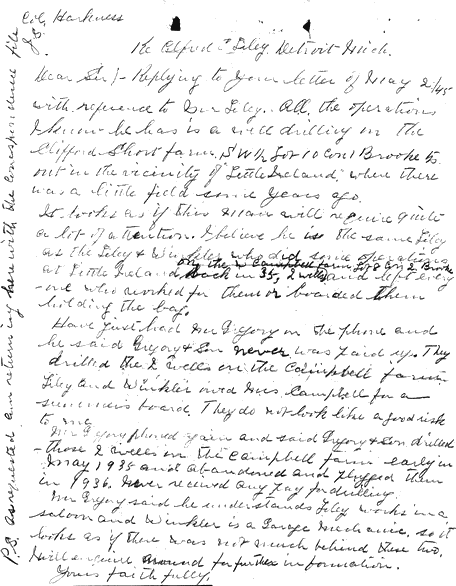 Col. Harkness
Re Alfred J Liley, Detroit Mich.
Dear Sir/- Replying to your letter of May 2/45
with reference to Mr Liley. All, the operations
I know he has is a well drilling on the
Clifford Short farm, S W 1/2 Lot 10 Con 1 Brooke Tp.
out in the vicinity of "Little Ireland" where there
was a little field some years ago.
It looks as if this man will require quite
a lot of attention. I believe he is the same Liley
as the Liley & Winkler who did some operating
on the Campbell farm Lot 8 Con 2 Brooke
at Little Ireland, back in 35, 2 wells, and left every
-one who worked for them or boarded them
holding the bag.
Have just had Mr Gregory on the phone and
he said Gregory & Son never was paid up. They
drilled the 2 wells on the Campbell farm.
Liley and Winkler owed Mrs Campbell for a
summers board. They do not look like a good risk
to me
Mr Gregory phoned again and said Gregory & Son drilled
those 2 wells on the Campbell farm early in
May 1935 and abandoned and plugged them
in 1936. Never received any pay for drilling.
Mr Gregory said he understands Liley works in a
saloon and Winkler is a Garage Mechanic, so it
looks as if there was not much behind these two.
Will enquire around for further information.
Yours faithfully,
P.S. As requested am returning herewith the correspondence file